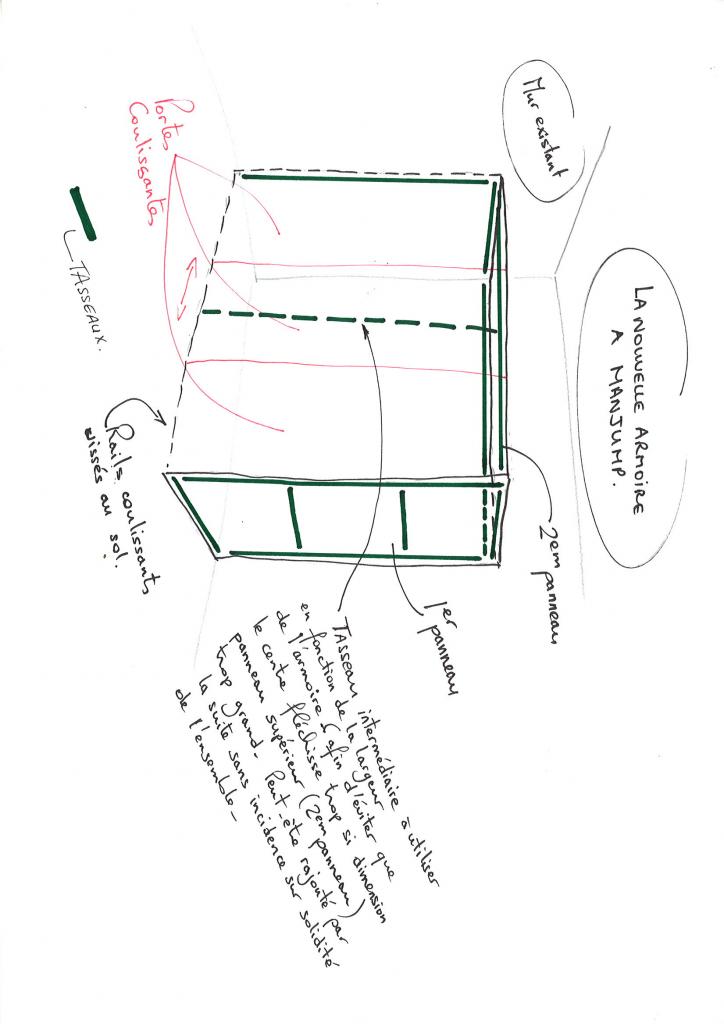 LA NOUVELLE ARMOIRE
A MANJUMP.
Mur existant
2em panneau
1er
panneau
Portes
Coulissantes
TASSEAUX.
Rails coulissants
vissés au sol.
TASSEAU intermédiaire à utiliser
en fonction de la largeur
de l'armoire (afin d'éviter que
le centre fléchisse trop si dimension
panneau supérieur (2em panneau)
trop grand. Peut être rajouté par
la suite sans incidence sur solidité
de l'ensemble-